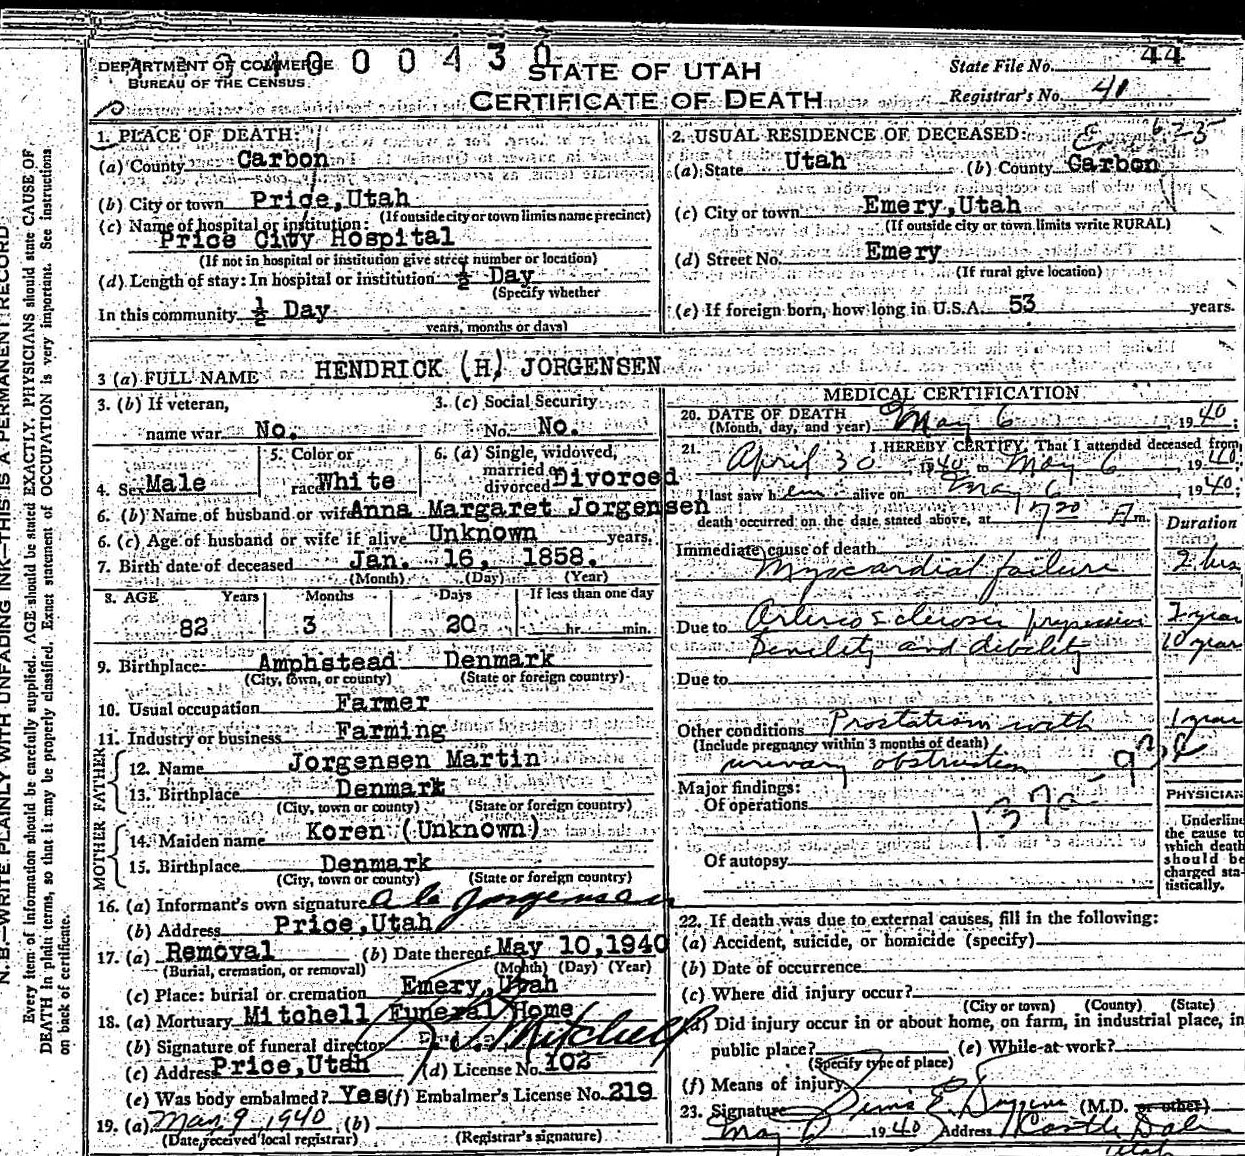 DEPARTMENT OF COMMERCE
BUREAU OF THE CENSUS
4 0 0 0 4 3 0
STATE OF UTAH
CERTIFICATE OF DEATH
State File No. 44
Registrar's No. 40
N. B.—WRITE PLAINLY WITH UNFADING INK—THIS IS A PERMANENT RECORD
Every item of information should be carefully supplied. AGE should be stated EXACTLY. PHYSICIANS should state CAUSE OF
DEATH in plain terms, so that it may be properly classified. Exact statement of OCCUPATION is very important. See instructions
on back of certificate.
1. PLACE OF DEATH:
(a) County Carbon
(b) City or town Price,Utah
(If outside city or town limits name precinct)
(c) Name of hospital or institution:
Price City Hospital
(If not in hospital or institution give street number or location)
(d) Length of stay: In hospital or institution ½ Day
(Specify whether
In this community ½ Day
years, months or days)
2. USUAL RESIDENCE OF DECEASED:
(a) State Utah (b) County Carbon
(c) City or town Emery,Utah
(If outside city or town limits write RURAL)
(d) Street No. Emery
(If rural give location)
(e) If foreign born, how long in U.S.A. 53 years.
3 (a) FULL NAME HENDRICK (H) JORGENSEN
3. (b) If veteran,
name war No.
3. (c) Social Security
No. No.
4. Sex Male
5. Color or
race White
6. (a) Single, widowed,
married or
divorced Divorced
6. (b) Name of husband or wife Anna Margaret Jorgensen
6. (c) Age of husband or wife if alive Unknown years.
7. Birth date of deceased Jan. 16, 1858.
(Month) (Day) (Year)
8. AGE Years Months Days If less than one day
82 3 20 hr. min.
9. Birthplace Amphstead Denmark
(City, town, or county) (State or foreign country)
10. Usual occupation Farmer
11. Industry or business Farming
FATHER
12. Name Jorgensen Martin
13. Birthplace Denmark
(City, town or county) (State or foreign country)
MOTHER
14. Maiden name Koren (Unknown)
15. Birthplace Denmark
(City, town or county) (State or foreign country)
16. (a) Informant's own signature Jorgensen
(b) Address Price,Utah
17. (a) Removal (b) Date thereof May 10,1940
(Burial, cremation, or removal) (Month) (Day) (Year)
(c) Place: burial or cremation Emery,Utah
18. (a) Mortuary Mitchell Funeral Home
(b) Signature of funeral director J. Mitchell
(c) Address Price,Utah (d) License No. 102
(e) Was body embalmed? Yes (f) Embalmer's License No. 219
19. (a) May 9, 1940 (b)
(Date received local registrar) (Registrar's signature)
MEDICAL CERTIFICATION
20. DATE OF DEATH May 6, 1940;
(Month, day, and year)
21. I HEREBY CERTIFY, That I attended deceased from
April 30 1940, to May 6, 1940;
I last saw him alive on May 6, 1940;
death occurred on the date stated above, at A m.
Duration
Immediate cause of death
Myocardial failure 2 hrs
Due to Arteriosclerosis progressive year
Senility and debility 10 year
Due to
Other conditions Prostatism with 1 year
(Include pregnancy within 3 months of death)
urinary obstruction
137a
Major findings:
Of operations
Of autopsy
PHYSICIAN
Underline
the cause to
which death
should be
charged sta-
tistically.
22. If death was due to external causes, fill in the following:
(a) Accident, suicide, or homicide (specify)
(b) Date of occurrence
(c) Where did injury occur?
(City or town) (County) (State)
(d) Did injury occur in or about home, on farm, in industrial place, in
public place? (e) While at work?
(Specify type of place)
(f) Means of injury
23. Signature (M.D. or other)
May 6 1940 Address Castle Dale
Utah